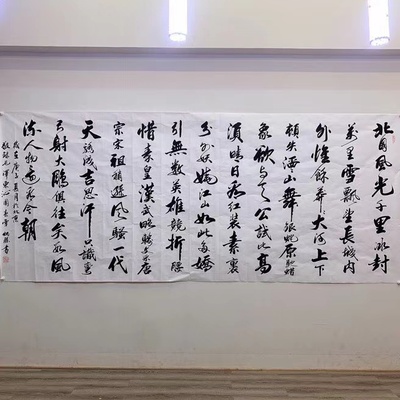 北國風光千里冰封
萬里雪飄望長城内
外惟餘莽莽大河上下
頓失滔滔山舞銀蛇原馳蠟
象欲与天公試比高
須晴日看紅裝素裹
分外妖嬈江山如此多嬌
引無數英雄競折腰
惜秦皇漢武略輸文采唐
宗宋祖稍遜風騷一代
天驕成吉思汗只識彎
弓射大雕俱往矣數風
流人物還看今朝
敬録毛澤東沁園春雪